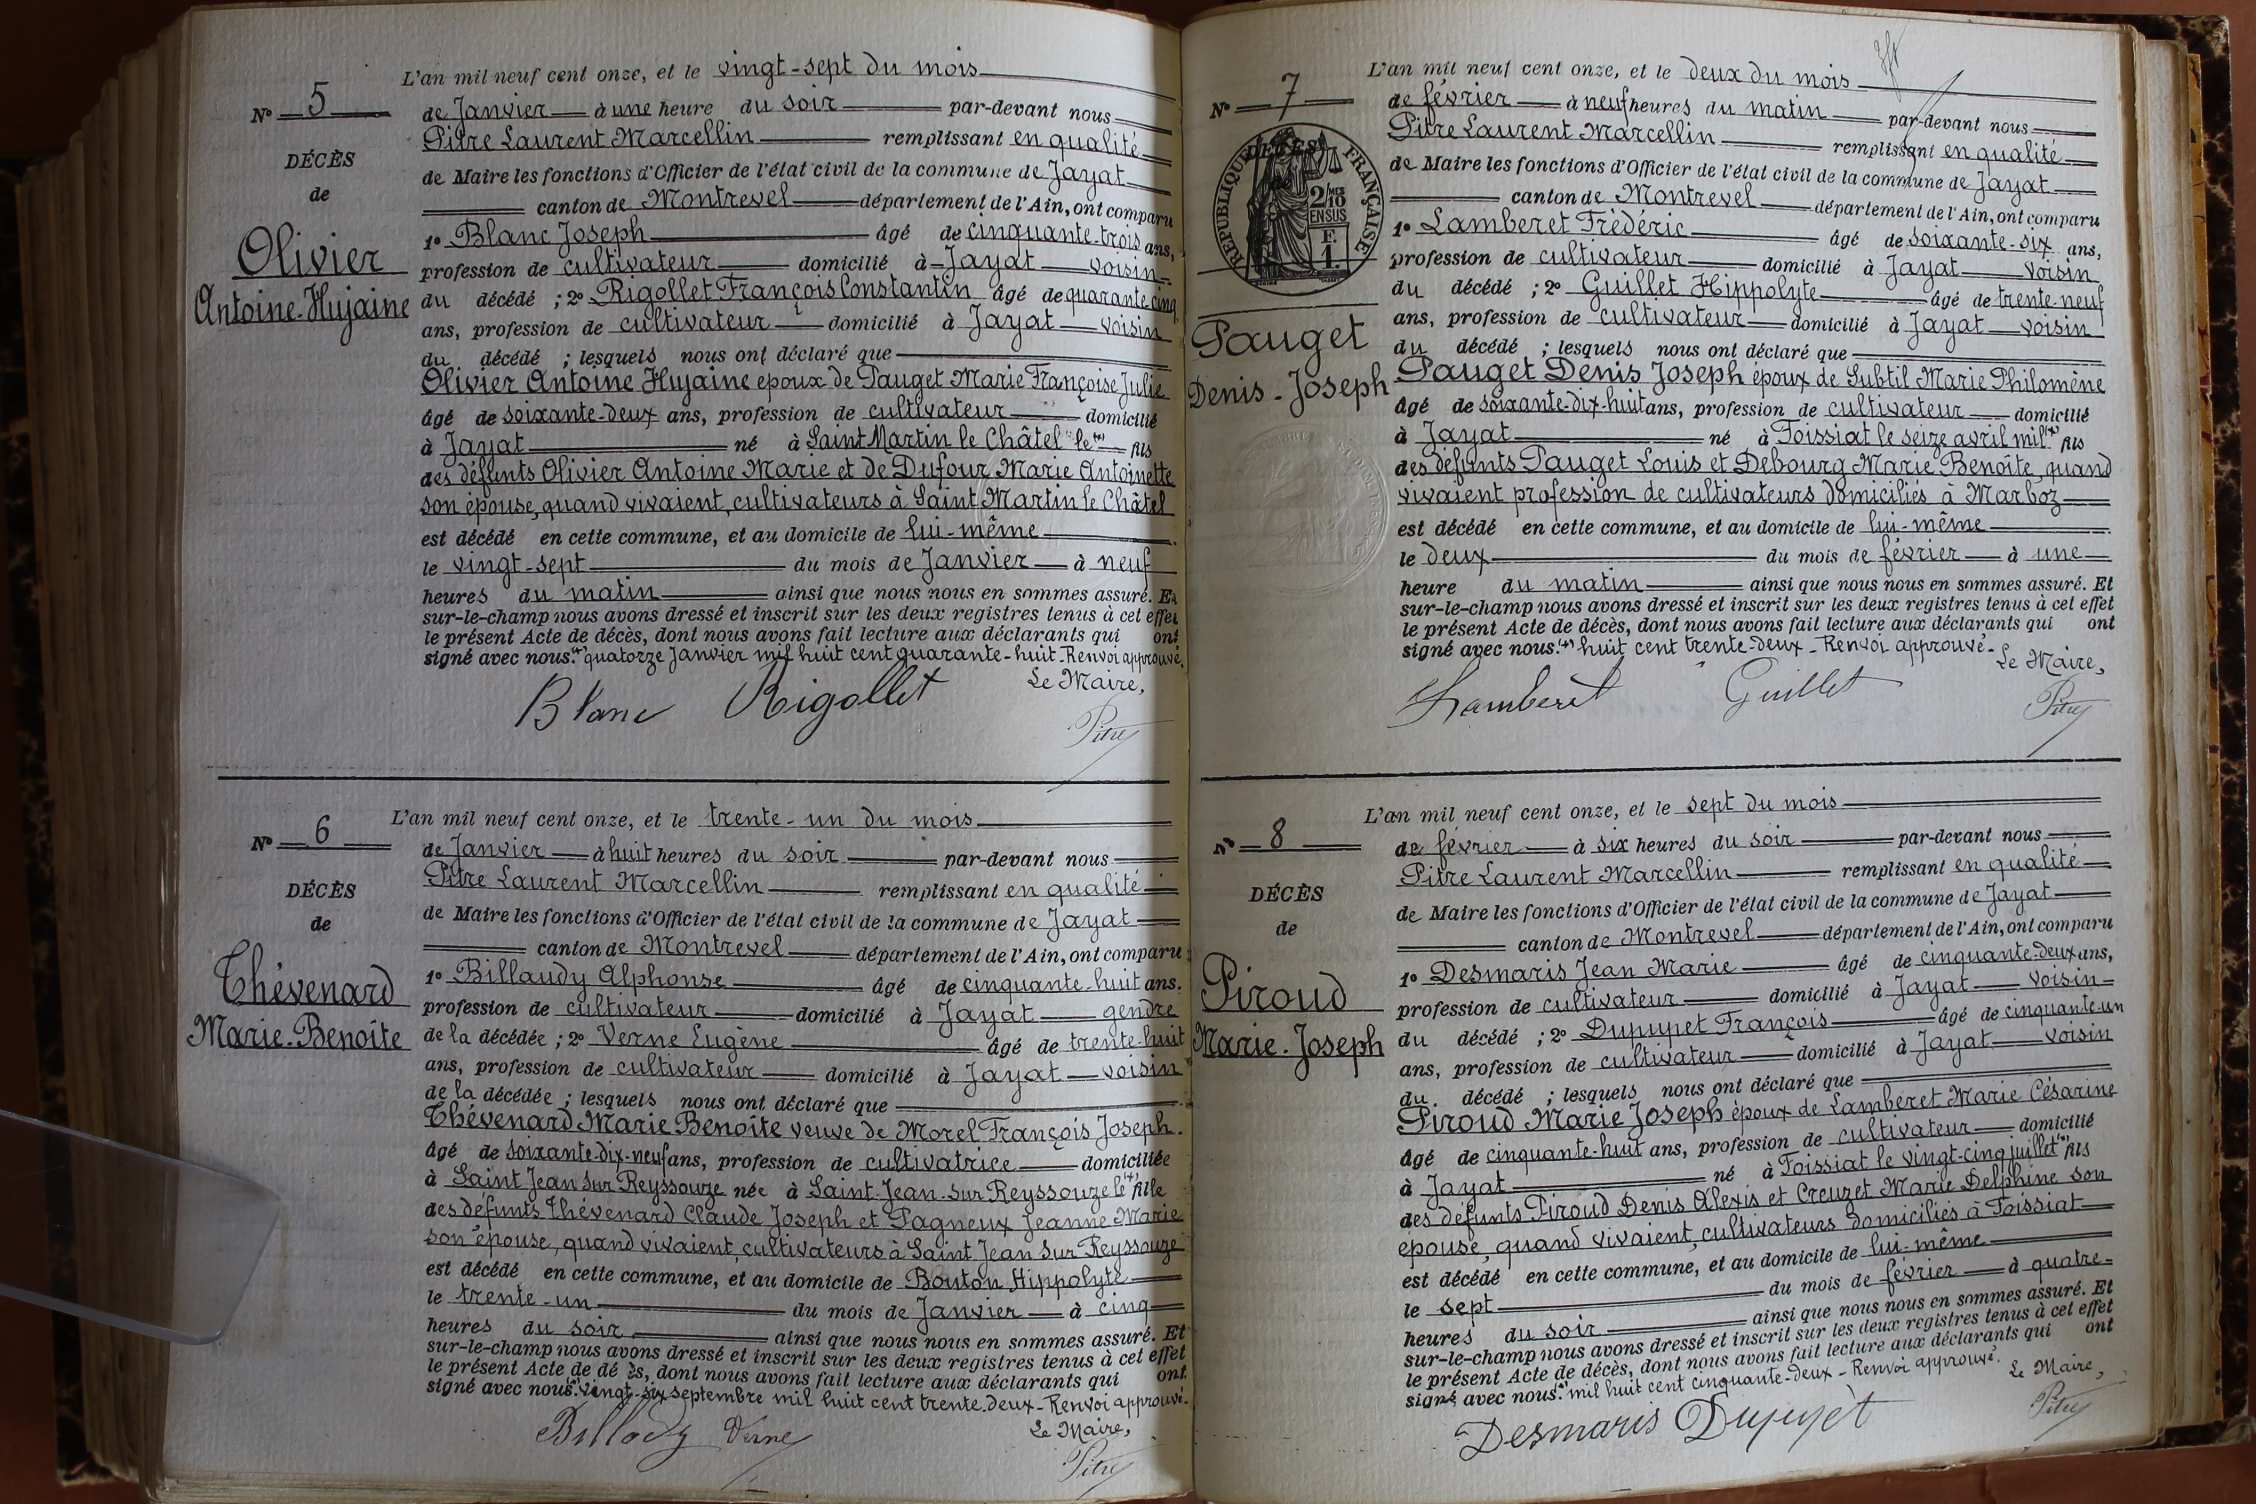 L'an mil neuf cent onze, et le vingt-sept du mois
N° 5
de Janvier à une heure du soir par-devant nous
Pitre Laurent Marcellin remplissant en qualité
DÉCÈS
de Maire les fonctions d'Officier de l'état civil de la commune de Jayat
de
canton de Montrevel département de l'Ain, ont comparu
1° Blanc Joseph âgé de cinquante-trois ans,
Olivier
profession de cultivateur domicilié à Jayat voisin
Antoine-Hujaine
du décédé ; 2° Rigollet François Constantin âgé de quarante cinq
ans, profession de cultivateur domicilié à Jayat voisin
du décédé ; lesquels nous ont déclaré que
Olivier Antoine Hujaine epoux de Pauget Marie Françoise Julie
âgé de soixante-deux ans, profession de cultivateur domicilié
à Jayat né à Saint Martin le Châtel le (*) fils
des défunts Olivier Antoine Marie et de Dufour Marie Antoinette
son épouse, quand vivaient, cultivateurs à Saint Martin le Châtel
est décédé en cette commune, et au domicile de lui-même
le vingt-sept du mois de Janvier à neuf
heures du matin ainsi que nous nous en sommes assuré. Et
sur-le-champ nous avons dressé et inscrit sur les deux registres tenus à cet effet
le présent Acte de décès, dont nous avons fait lecture aux déclarants qui ont
signé avec nous. (*) quatorze Janvier mil huit cent quarante-huit - Renvoi approuvé.
Le Maire,
Blanc Rigollet
Pitre
L'an mil neuf cent onze, et le trente-un du mois
N° 6
de Janvier à huit heures du soir par-devant nous
Pitre Laurent Marcellin remplissant en qualité
DÉCÈS
de Maire les fonctions d'Officier de l'état civil de la commune de Jayat
de
canton de Montrevel département de l'Ain, ont comparu
1° Billaudy Alphonse âgé de cinquante-huit ans.
Thévenard
profession de cultivateur domicilié à Jayat gendre
Marie-Benoîte
de la décédée ; 2° Verne Eugène âgé de trente-huit
ans, profession de cultivateur domicilié à Jayat voisin
de la décédée ; lesquels nous ont déclaré que
Thévenard Marie Benoîte veuve de Morel François Joseph.
âgé de soixante-dix-neuf ans, profession de cultivatrice domiciliée
à Saint Jean sur Reyssouze née à Saint-Jean-sur Reyssouze le (*) fille
des défunts Thévenard Claude Joseph et Pagneux Jeanne Marie
son épouse, quand vivaient, cultivateurs à Saint Jean sur Reyssouze
est décédé en cette commune, et au domicile de Bouton Hippolyte
le trente-un du mois de Janvier à cinq
heures du soir ainsi que nous nous en sommes assuré. Et
sur-le-champ nous avons dressé et inscrit sur les deux registres tenus à cet effet
le présent Acte de dé ès, dont nous avons fait lecture aux déclarants qui ont
signé avec nous. (*) vingt-six septembre mil huit cent trente-deux - Renvoi approuvé.
Le Maire,
Billody Verne
Pitre
L'an mil neuf cent onze, et le deux du mois
N° 7
de février à neuf heures du matin par-devant nous
Pitre Laurent Marcellin remplissant en qualité
DÉCÈS
RÉPUBLIQUE FRANÇAISE
2/10 MES
EN SUS
F.
1.
de Maire les fonctions d'Officier de l'état civil de la commune de Jayat
canton de Montrevel département de l'Ain, ont comparu
1° Lamberet Frédéric âgé de soixante-six ans,
profession de cultivateur domicilié à Jayat voisin
du décédé ; 2° Guillet Hippolyte âgé de trente-neuf
Pauget
ans, profession de cultivateur domicilié à Jayat voisin
du décédé ; lesquels nous ont déclaré que
Denis-Joseph
Pauget Denis Joseph époux de Subtil Marie Philomène
âgé de soixante-dix-huit ans, profession de cultivateur domicilié
à Jayat né à Foissiat le seize avril mil (*) fils
des défunts Pauget Louis et Debourg Marie Benoîte, quand
vivaient profession de cultivateurs domiciliés à Marboz
est décédé en cette commune, et au domicile de lui-même
le deux du mois de février à une
heure du matin ainsi que nous nous en sommes assuré. Et
sur-le-champ nous avons dressé et inscrit sur les deux registres tenus à cet effet
le présent Acte de décès, dont nous avons fait lecture aux déclarants qui ont
signé avec nous. (*) huit cent trente-deux - Renvoi approuvé.
Le Maire,
Lamberet Guillet
Pitre
L'an mil neuf cent onze, et le sept du mois
N° 8
de février à six heures du soir par-devant nous
Pitre Laurent Marcellin remplissant en qualité
DÉCÈS
de Maire les fonctions d'Officier de l'état civil de la commune de Jayat
de
canton de Montrevel département de l'Ain, ont comparu
1° Desmaris Jean Marie âgé de cinquante-deux ans,
Piroud
profession de cultivateur domicilié à Jayat voisin
Marie-Joseph
du décédé ; 2° Dupupet François âgé de cinquante-un
ans, profession de cultivateur domicilié à Jayat voisin
du décédé ; lesquels nous ont déclaré que
Piroud Marie Joseph époux de Lamberet Marie Césarine
âgé de cinquante-huit ans, profession de cultivateur domicilié
à Jayat né à Foissiat le vingt-cinq juillet (*) fils
des défunts Piroud Denis Alexis et Creuzet Marie Delphine son
épouse, quand vivaient, cultivateurs domiciliés à Foissiat
est décédé en cette commune, et au domicile de lui-même
le sept du mois de février à quatre
heures du soir ainsi que nous nous en sommes assuré. Et
sur-le-champ nous avons dressé et inscrit sur les deux registres tenus à cet effet
le présent Acte de décès, dont nous avons fait lecture aux déclarants qui ont
signé avec nous. (*) mil huit cent cinquante-deux - Renvoi approuvé.
Le Maire,
Desmaris Dupupet
Pitre